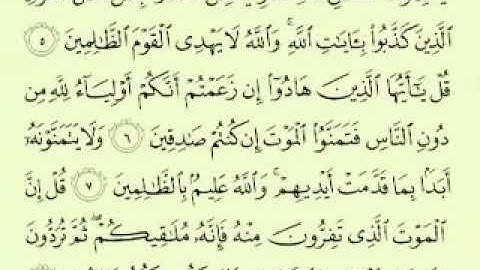 ٱلَّذِينَ كَذَّبُوا۟ بِـَٔايَـٰتِ ٱللَّهِ ۚ وَٱللَّهُ لَا يَهْدِى ٱلْقَوْمَ ٱلظَّـٰلِمِينَ ٥
قُلْ يَـٰٓأَيُّهَا ٱلَّذِينَ هَادُوٓا۟ إِن زَعَمْتُمْ أَنَّكُمْ أَوْلِيَآءُ لِلَّهِ مِن
دُونِ ٱلنَّاسِ فَتَمَنَّوُا۟ ٱلْمَوْتَ إِن كُنتُمْ صَـٰدِقِينَ ٦ وَلَا يَتَمَنَّوْنَهُۥٓ
أَبَدًۢا بِمَا قَدَّمَتْ أَيْدِيهِمْ ۚ وَٱللَّهُ عَلِيمٌۢ بِٱلظَّـٰلِمِينَ ٧ قُلْ إِنَّ
ٱلْمَوْتَ ٱلَّذِى تَفِرُّونَ مِنْهُ فَإِنَّهُۥ مُلَـٰقِيكُمْ ۖ ثُمَّ تُرَدُّونَ